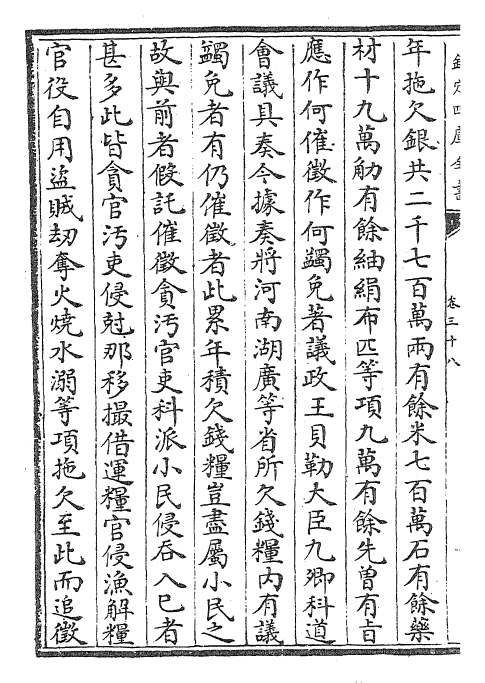 欽定四庫全書
卷三十八
年拖欠銀共二千七百萬兩有餘米七百萬石有餘藥
材十九萬觔有餘紬絹布匹等項九萬有餘先曾有旨
應作何催徵作何蠲免著議政王貝勒大臣九卿科道
會議具奏今據奏將河南湖廣等省所欠錢糧內有議
蠲免者有仍催徵者此累年積欠錢糧豈盡屬小民之
故與前者假託催徵貪汚官吏科派小民侵吞入已者
甚多此皆貪官汚吏侵尅那移撮借運糧官侵漁解糧
官役自用盜賊刼奪火燒水溺等項拖欠至此而追徵